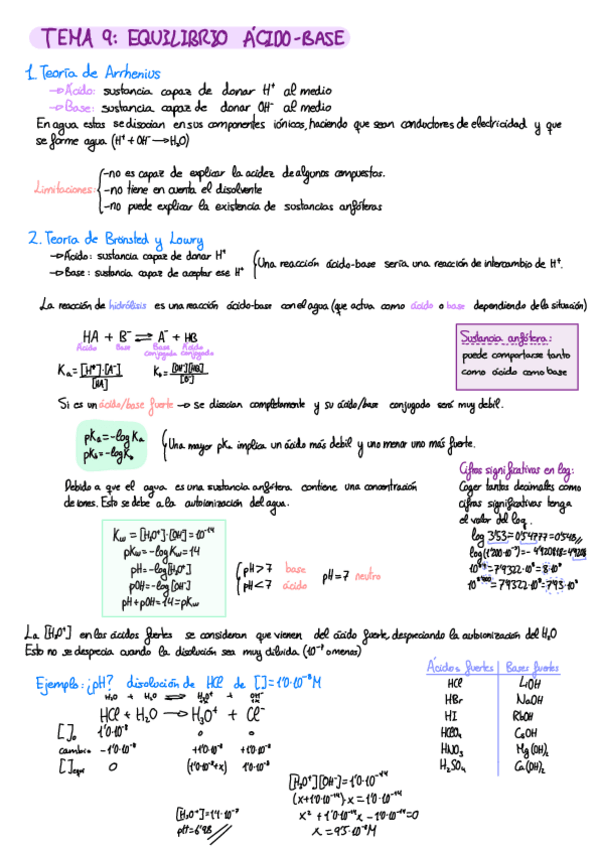 TEMA 9: EQUILIBRIO ÁCIDO-BASE
1. Teoría de Arrhenius
→Ácido: sustancia capaz de donar H⁺ al medio
→Base: sustancia capaz de donar OH⁻ al medio
En agua estas se disocian en sus componentes iónicos, haciendo que sean conductores de electricidad y que
se forme agua (H⁺ + OH⁻ → H₂O)
Limitaciones:
-no es capaz de explicar la acidez de algunos compuestos.
-no tiene en cuenta el disolvente
-no puede explicar la existencia de sustancias anfóteras
2. Teoría de Brönsted y Lowry
→Ácido: sustancia capaz de donar H⁺
→Base: sustancia capaz de aceptar ese H⁺
Una reacción ácido-base sería una reacción de intercambio de H⁺.
La reacción de hidrólisis es una reacción ácido-base con el agua (que actua como ácido o base dependiendo de la situación)
HA + B⁻ ⇌ A⁻ + HB
Ácido Base Base conjugada Ácido conjugado
Ka = [H⁺]·[A⁻] / [HA]
Kb = [OH⁻][HB] / [B⁻]
Sustancia anfótera:
puede comportarse tanto
como ácido como base
Si es un ácido/base fuerte → se disocian completamente y su ácido/base conjugado será muy debil.
pKa = -log Ka
pKb = -log Kb
Una mayor pKa implica un ácido más debil y uno menor uno más fuerte.
Debido a que el agua es una sustancia anfótera contiene una concentración
de iones. Esto se debe a la autoionización del agua.
Cifras significativas en log:
Coger tantos decimales como
cifras significativas tenga
el valor del log.
log 3'53 = 0'54777 = 0'548
Kw = [H₃O⁺]·[OH⁻] = 10⁻¹⁴
pKw = -log Kw = 14
pH = -log[H₃O⁺]
pOH = -log[OH⁻]
pH + pOH = 14 = pKw
pH > 7 base
pH < 7 ácido
pH = 7 neutro
La [H₃O⁺] en los ácidos fuertes se consideran que vienen del ácido fuerte, despreciando la autoionización del H₂O
Esto no se desprecia cuando la disolución sea muy diluida (10⁻⁷ o menos)
Ejemplo: ¿pH? disolución de HCl de [ ] = 1'0·10⁻⁸ M
H₂O + H₂O ⇌ H₃O⁺ + OH⁻
HCl + H₂O → H₃O⁺ + Cl⁻
[ ]₀ 1'0·10⁻⁸ 0 0
cambio -1'0·10⁻⁸ +1'0·10⁻⁸ +1'0·10⁻⁸
0 (1'0·10⁻⁸+x) 1'0·10⁻⁸
Ácidos fuertes Bases fuertes
HCl LiOH
HBr NaOH
HI RbOH
HClO₄ CsOH
HNO₃ Mg(OH)₂
H₂SO₄ Ca(OH)₂
[H₃O⁺][OH⁻] = 1'0·10⁻¹⁴
x = 9'5·10⁻⁸ M
pH = 6'98